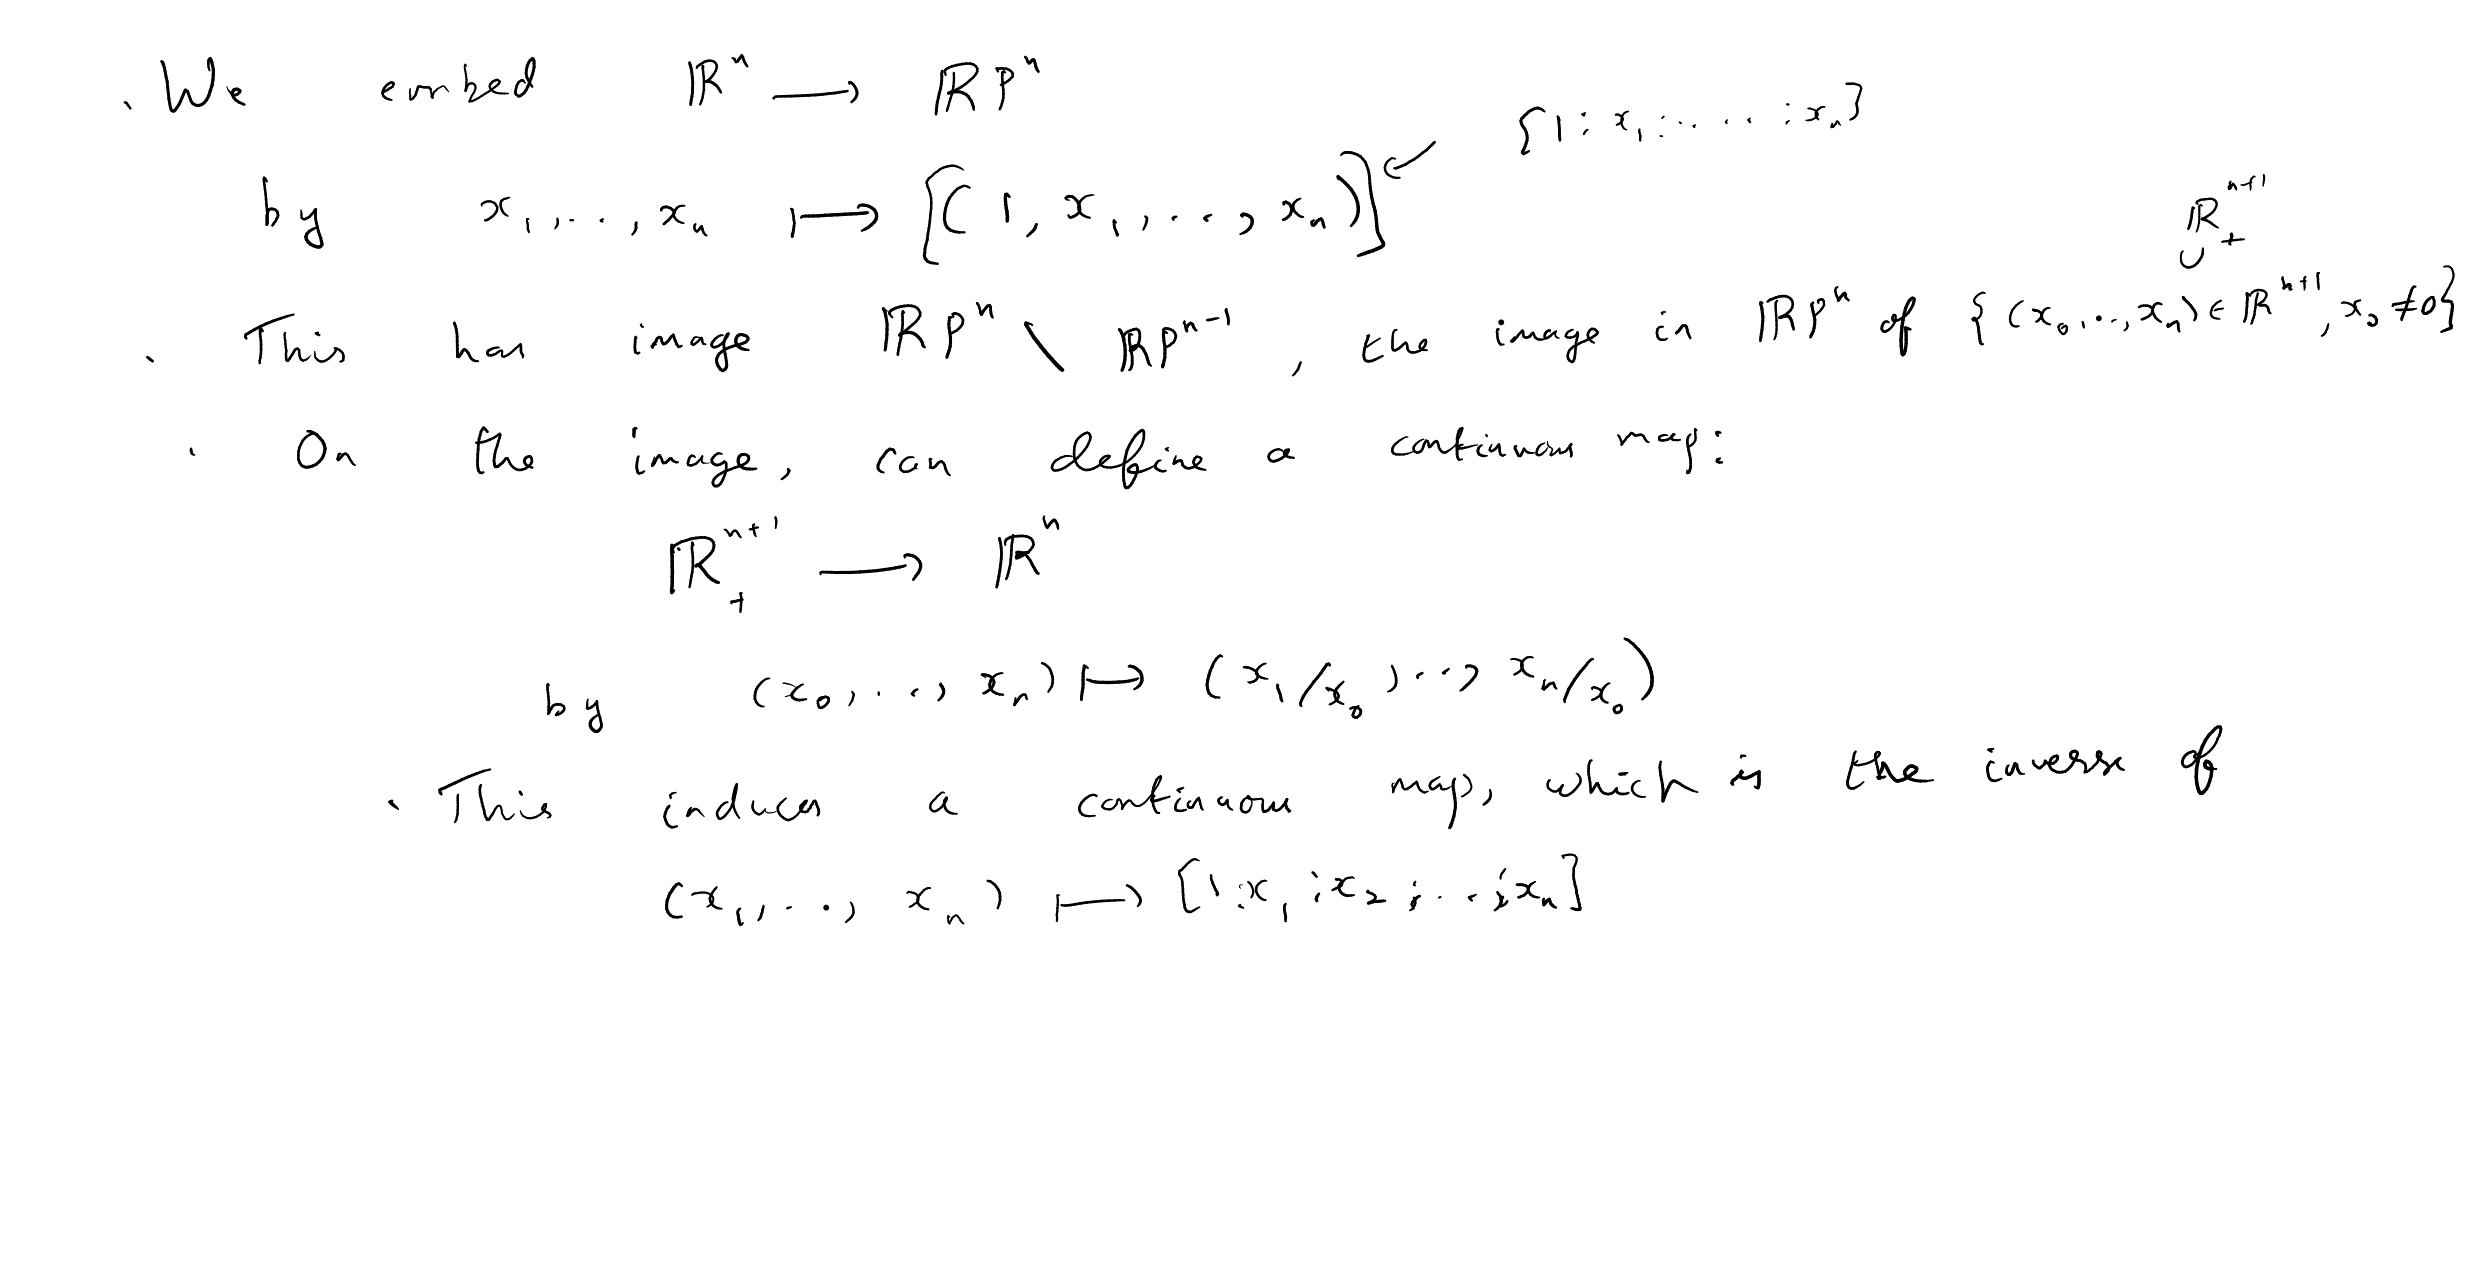 · We embed ℝⁿ ⟶ ℝPⁿ
{1 : x₁ : .... : xₙ}
by x₁,..,xₙ ⟼ [(1, x₁,..., xₙ)] ↙
ℝ₊ⁿ⁺¹
∪
· This has image ℝPⁿ \ ℝPⁿ⁻¹, the image in ℝPⁿ of {(x₀,..,xₙ) ∈ ℝⁿ⁺¹, x₀ ≠ 0}
· On the image, can define a continuous map:
ℝ₊ⁿ⁺¹ ⟶ ℝⁿ
by (x₀,..., xₙ) ⟼ (x₁/x₀,.., xₙ/x₀)
· This induces a continuous map, which is the inverse of
(x₁,..., xₙ) ⟼ [1:x₁:x₂:..:xₙ]